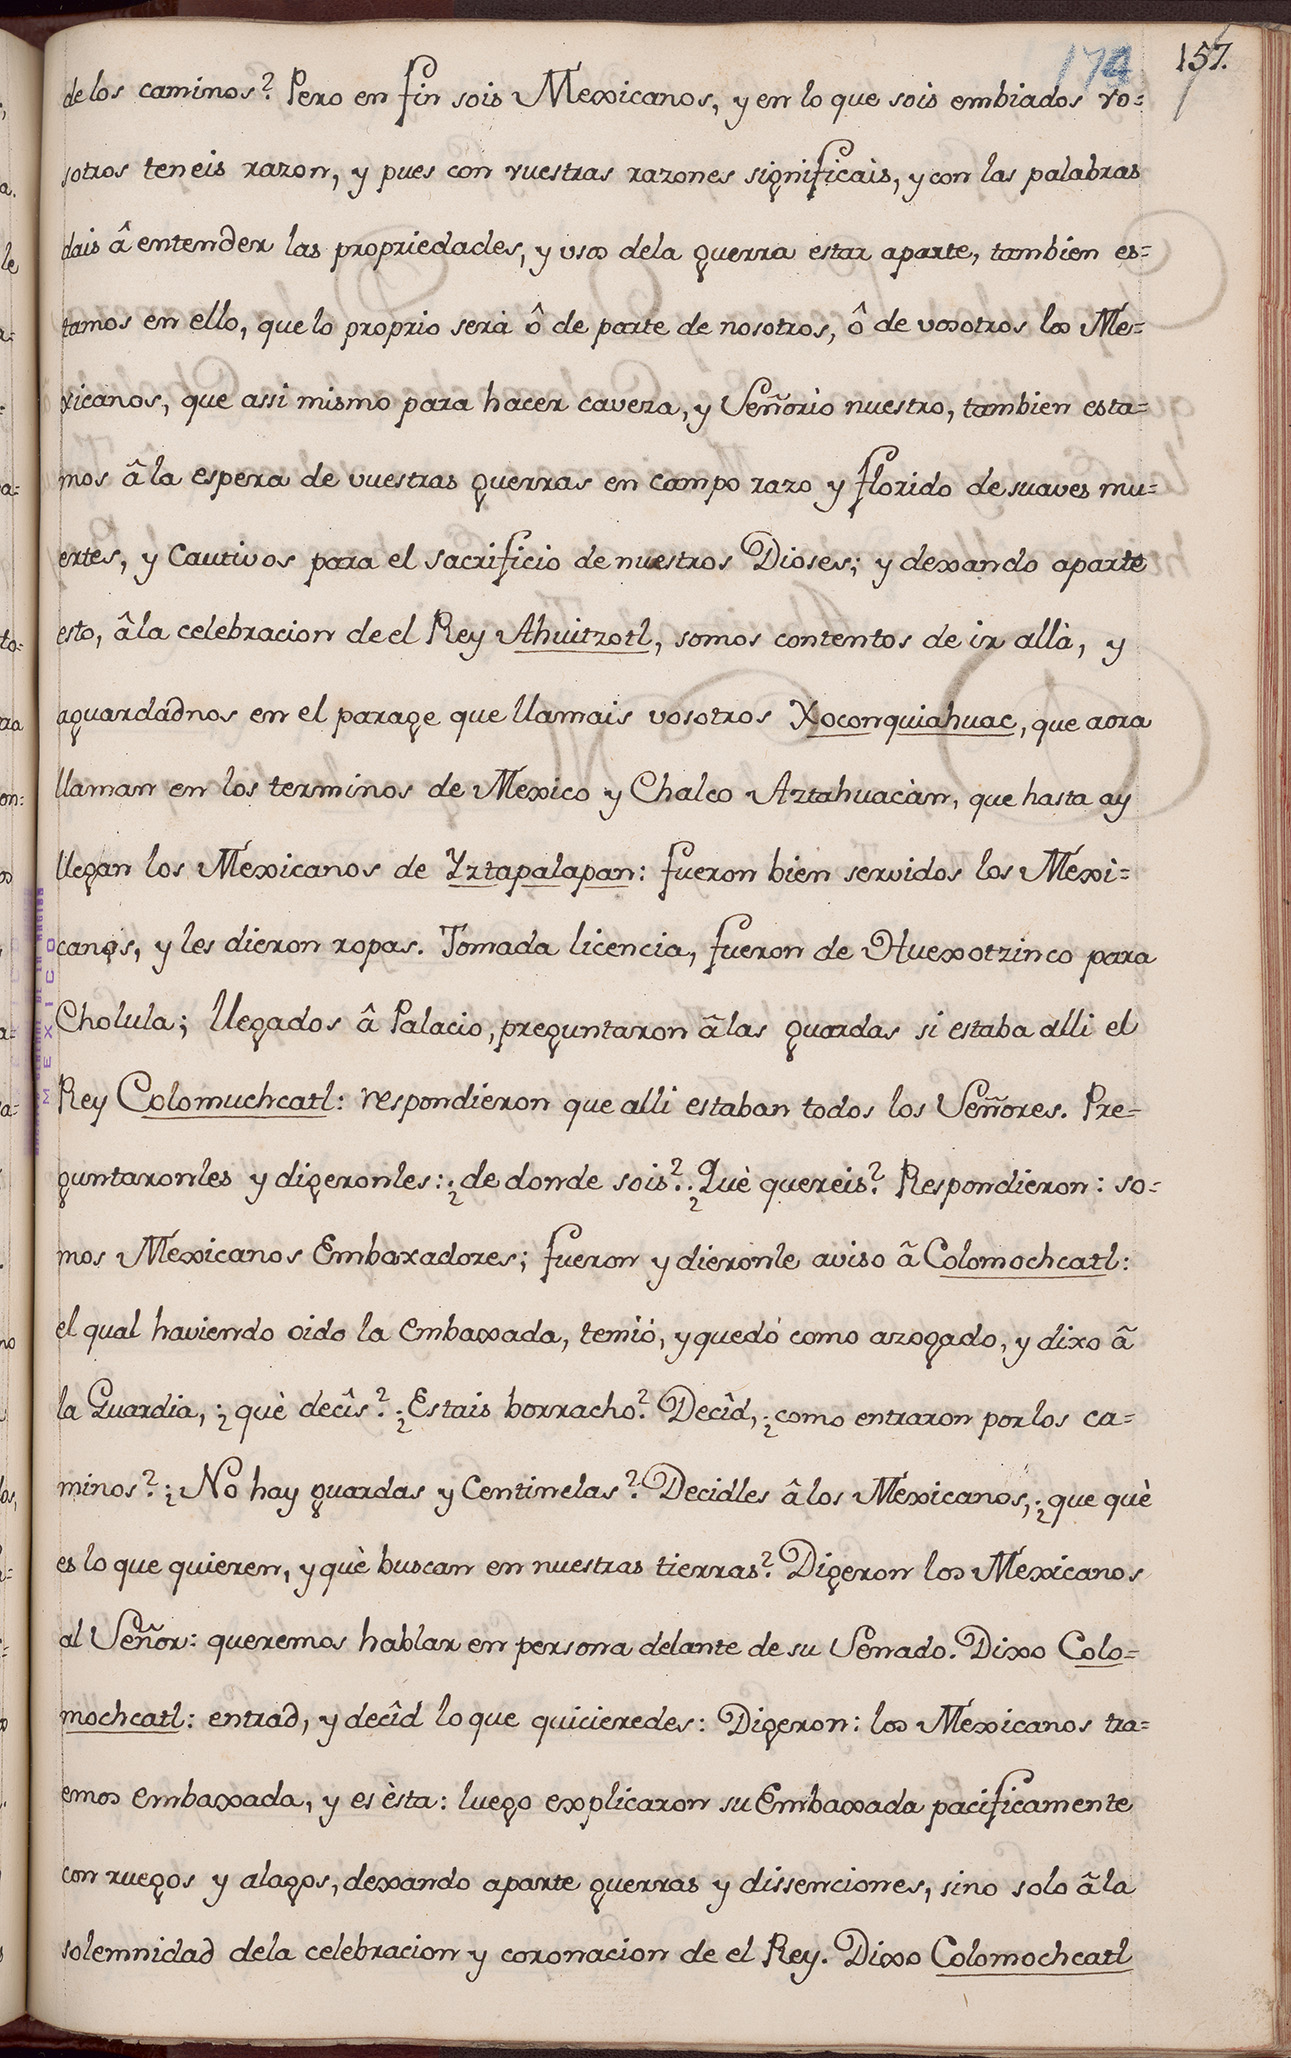 174 157.
de los caminos? Pero en fin sois Mexicanos, y en lo que sois embiados vo=
sotros teneis razon, y pues con vuestras razones significais, y con las palabras
dais â entender las propriedades, y usos dela guerra estar aparte, tambien es=
tamos en ello, que lo proprio serà ô de parte de nosotros, ô de vosotros los Me=
xicanos, que assi mismo para hacer cavera, y Señorio nuestro, tambien esta=
mos â la espera de vuestras guerras en campo razo y florido de suaves mu=
ertes, y Cautivos para el sacrificio de nuestros Dioses; y dexando aparte
esto, â la celebracion de el Rey Ahuitzotl, somos contentos de ir allà, y
aguardadnos en el parage que llamais vosotros Xoconquiahuac, que aora
llaman en los terminos de Mexico y Chalco Aztahuacàn, que hasta ay
llegan los Mexicanos de Yztapalapan: fueron bien servidos los Mexi=
canos, y les dieron ropas. Tomada licencia, fueron de Huexotzinco para
Cholula; llegados â Palacio, preguntaron â las guardas si estaba alli el
Rey Colomuchcatl: respondieron que alli estaban todos los Señores. Pre=
guntaronles y digeronles: ¿de donde sois? ¿Què quereis? Respondieron: so=
mos Mexicanos Embaxadores; fueron y dieronle aviso ã Colomochcatl:
el qual haviendo oido la embaxada, temió, y quedó como azogado, y dixo ã
la Guardia, ¿què decîs? ¿Estais borracho? Decîd, ¿como entraron por los ca=
minos? ¿No hay guardas y Centinelas? Decidles â los Mexicanos, ¿que què
es lo que quieren, y què buscan en nuestras tierras? Digeron los Mexicanos
al Señor: queremos hablar en persona delante de su Senado. Dixo Colo=
mochcatl: entrad, y decîd lo que quicieredes: Digeron: los Mexicanos tra=
emos embaxada, y es èsta: luego explicaron su Embaxada pacificamente
con ruegos y alagos, dexando aparte guerras y dissenciones, sino solo ã la
solemnidad dela celebracion y coronacion de el Rey. Dixo Colomochcatl
MEXICO